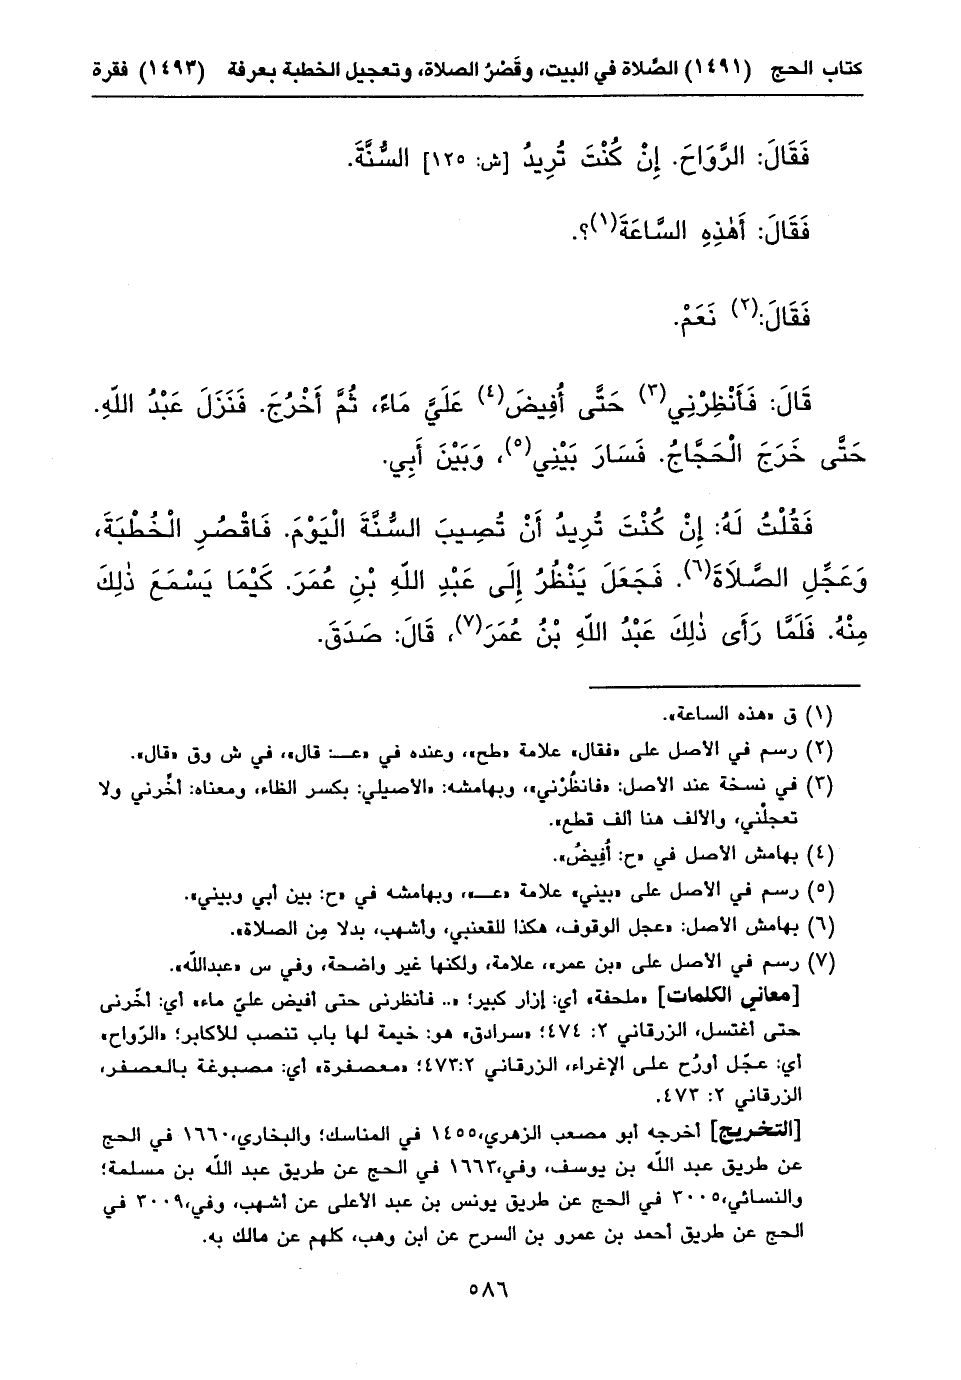 كتاب الحج (١٤٩١) الصَّلاة في البيت، وقَصْرُ الصلاة، وتعجيل الخطبة بعرفة (١٤٩٣) فقرة
فَقَالَ: الرَّوَاحَ. إِنْ كُنْتَ تُرِيدُ [ش: ١٢٥] السُّنَّةَ.
فَقَالَ: أَهٰذِهِ السَّاعَةَ(١)؟.
فَقَالَ:(٢) نَعَمْ.
قَالَ: فَأَنْظِرْنِي(٣) حَتَّى أُفِيضَ(٤) عَلَيَّ مَاءً، ثُمَّ أَخْرُجَ. فَنَزَلَ عَبْدُ اللّهِ.
حَتَّى خَرَجَ الْحَجَّاجُ. فَسَارَ بَيْنِي(٥)، وَبَيْنَ أَبِي.
فَقُلْتُ لَهُ: إِنْ كُنْتَ تُرِيدُ أَنْ تُصِيبَ السُّنَّةَ الْيَوْمَ. فَاقْصُرِ الْخُطْبَةَ،
وَعَجِّلِ الصَّلَاةَ(٦). فَجَعَلَ يَنْظُرُ إِلَى عَبْدِ اللّهِ بْنِ عُمَرَ. كَيْمَا يَسْمَعَ ذٰلِكَ
مِنْهُ. فَلَمَّا رَأَى ذٰلِكَ عَبْدُ اللّهِ بْنُ عُمَرَ(٧)، قَالَ: صَدَقَ.
(١) ق «هذه الساعة».
(٢) رسم في الأصل على «فقال» علامة «طح»، وعنده في «عـ: قال»، في ش وق «قال».
(٣) في نسخة عند الأصل: «فانظُرْني»، وبهامشه: «الأصيلي: بكسر الظاء، ومعناه: أخِّرني ولا
تعجلْني، والألف هنا ألف قطع».
(٤) بهامش الأصل في «ح: أُفِيضُ».
(٥) رسم في الأصل على «بيني» علامة «عـ»، وبهامشه في «ح: بين أبي وبيني».
(٦) بهامش الأصل: «عجل الوقوف، هكذا للقعنبي، وأشهب، بدلا مِن الصلاة».
(٧) رسم في الأصل على «بن عمر»، علامة، ولكنها غير واضحة، وفي س «عبداللّه».
[معاني الكلمات] «ملحفة» أي: إزار كبير؛ «.. فأنظرنى حتى أفيض عليّ ماء» أي: أخّرنى
حتى أغتسل، الزرقاني ٢: ٤٧٤؛ «سرادق» هو: خيمة لها باب تنصب للأكابر؛ «الرّواح»
أي: عجّل أورُح على الإغراء، الزرقاني ٤٧٣:٢؛ «معصفرة» أي: مصبوغة بالعصفر،
الزرقاني ٢: ٤٧٣.
[التخريج] أخرجه أبو مصعب الزهري،١٤٥٥ في المناسك؛ والبخاري،١٦٦٠ في الحج
عن طريق عبد اللّه بن يوسف، وفي،١٦٦٣ في الحج عن طريق عبد اللّه بن مسلمة؛
والنسائي،٣٠٠٥ في الحج عن طريق يونس بن عبد الأعلى عن أشهب، وفي،٣٠٠٩ في
الحج عن طريق أحمد بن عمرو بن السرح عن ابن وهب، كلهم عن مالك به.
٥٨٦